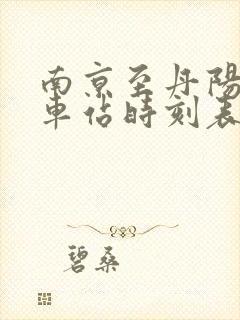 南京至丹陽
車站時刻表
碧桑